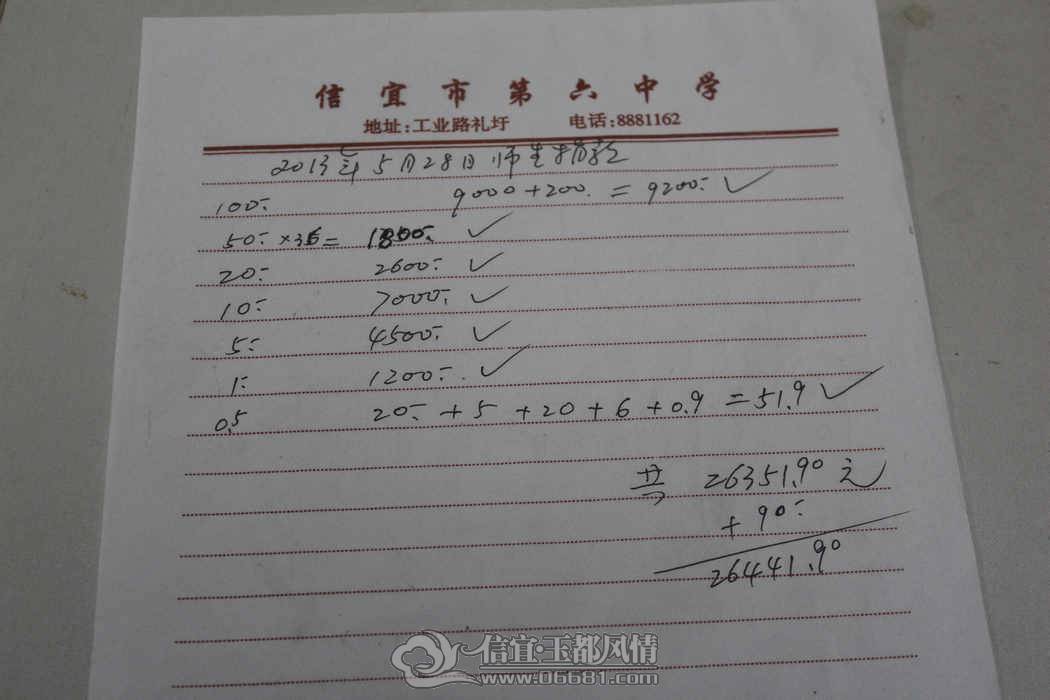 信宜市第六中学
地址:工业路礼圩 电话:8881162
2013年5月28日师生捐款
100.- 9000+200.=9200.- ✓
50.-×36= 1800.- ✓
20.- 2600.- ✓
10.- 7000.- ✓
5.- 4500.- ✓
1.- 1200.- ✓
0.5 20.-+5+20+6+0.9=51.9 ✓
共 26351.90元
+90.-
26441.90
信宜·玉都风情
www.06681.com